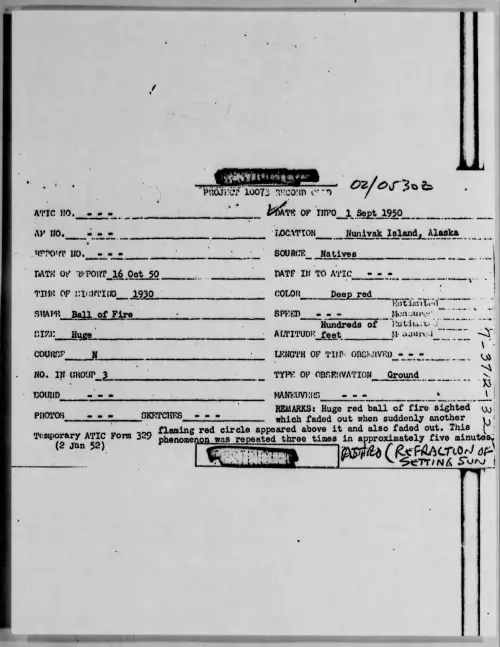 PROJECT 10073 RECORD CARD
02/05303
ATIC NO. - - - DATE OF INFO 1 Sept 1950
AF NO. - - - LOCATION Nunivak Island, Alaska
REPORT NO. - - - SOURCE Natives
DATE OF REPORT 16 Oct 50 DATE IN TO ATIC - - -
TIME OF SIGHTING 1930 COLOR Deep red
SHAPE Ball of Fire SPEED - - - Estimated Measured
SIZE Huge ALTITUDE Hundreds of feet Estimated Measured
COURSE N LENGTH OF TIME OBSERVED - - -
NO. IN GROUP 3 TYPE OF OBSERVATION Ground
SOUND - - - MANEUVERS - - -
PHOTOS - - - SKETCHES - - -
REMARKS: Huge red ball of fire sighted
which faded out when suddenly another
flaming red circle appeared above it and also faded out. This
phenomenon was repeated three times in approximately five minutes.
Temporary ATIC Form 329
(2 Jan 52)
ASTRO (REFRACTION OF
SETTING SUN
7-3712-32